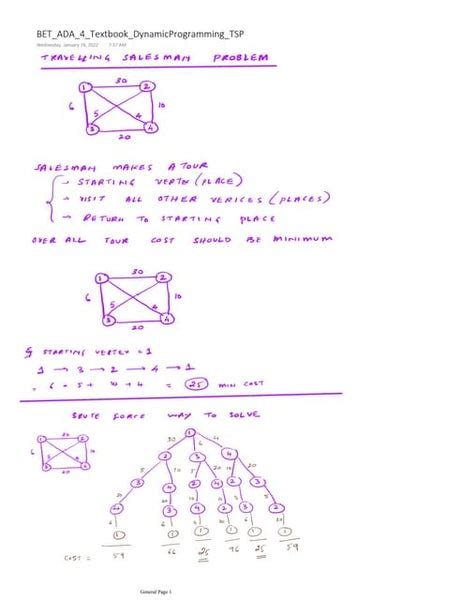 BET_ADA_4_Textbook_DynamicProgramming_TSP
Wednesday, January 19, 2022 7:37 AM
TRAVELLING SALESMAN PROBLEM
30
1 2
6 5 4 10
3 4
20
SALESMAN MAKES A TOUR
→ STARTING VERTEX (PLACE)
→ VISIT ALL OTHER VERICES (PLACES)
→ RETURN TO STARTING PLACE
OVER ALL TOUR COST SHOULD BE MINIMUM
30
1 2
6 5 4 10
3 4
20
STARTING VERTEX = 1
1 → 3 → 2 → 4 → 1
= 6 + 5 + 4 = 25 MIN COST
BRUTE FORCE WAY TO SOLVE
1 2
3 4
1
30 6
2 3 4
3 4 2 4 2 3
4 3 4 2 3 2
1 1 1 1 1 1
COST = 59 66 25 96 25 59
General Page 1